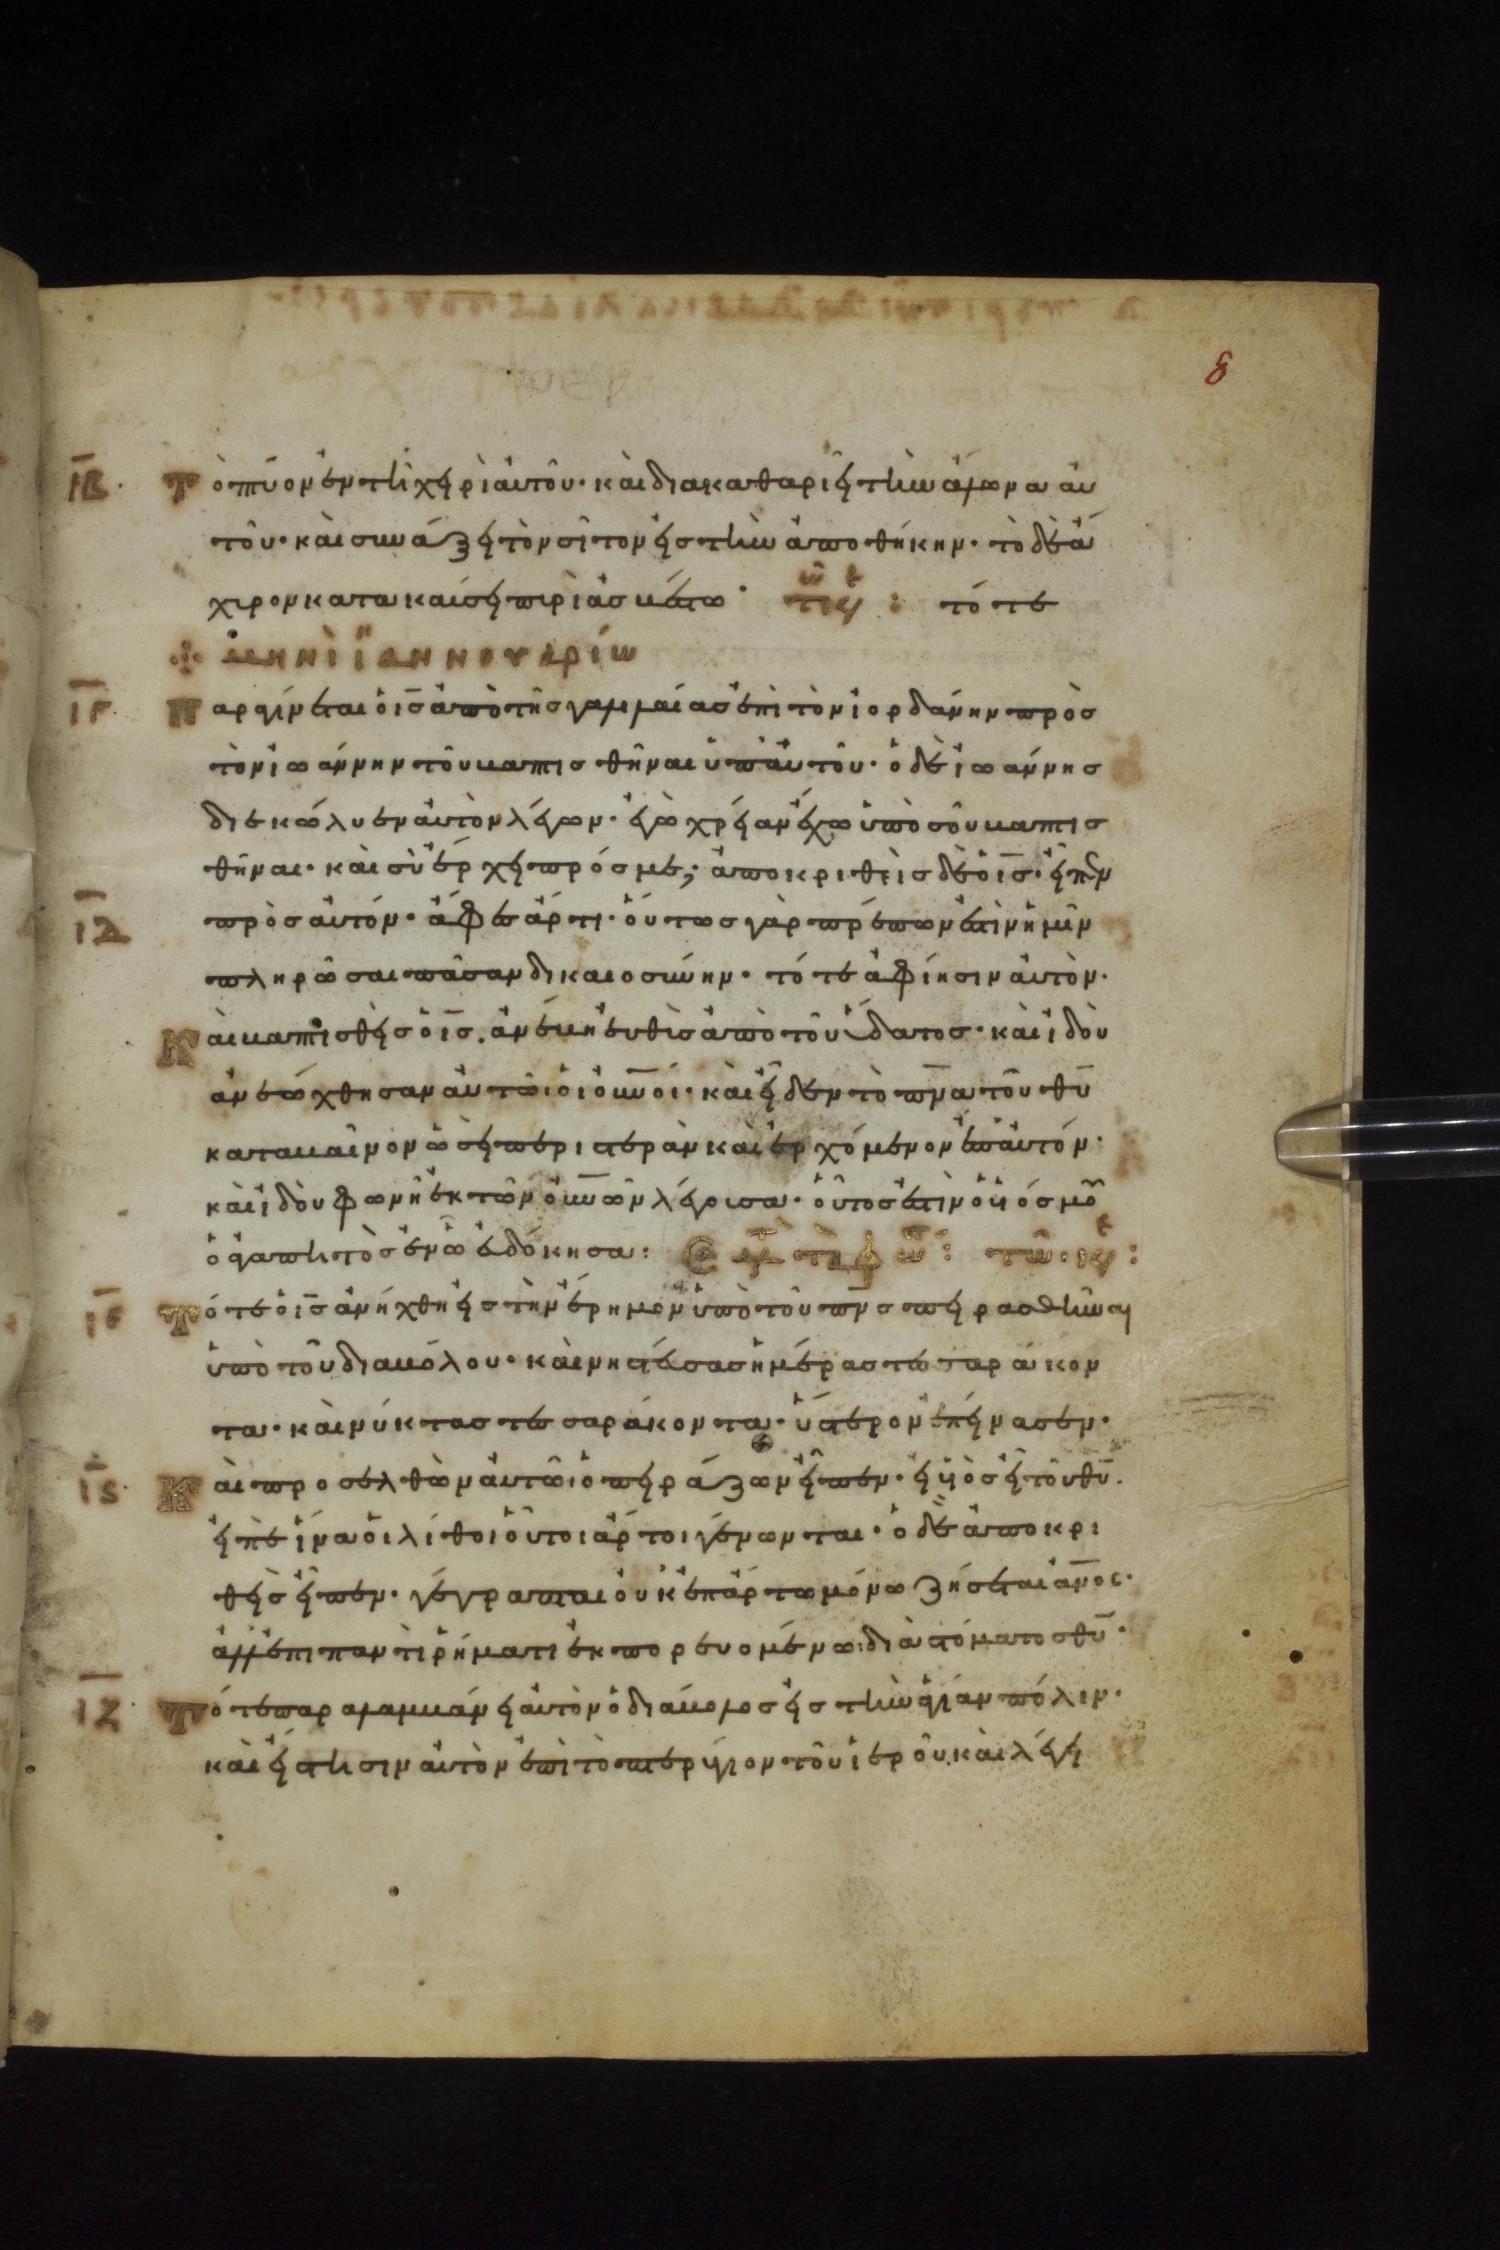 8
ΙΒ Τὸ πτύον ἐν τῆ χειρὶ ἀυτοῦ· κὰι διακαθαριεῖ τὴν ἅλωνα ἀυ
τοῦ· κὰι συνάξει τὸν σῖτον εἰς τὴν ἀποθήκην· τὸ δὲ ἄ
χυρον κατακαύσει πυρὶ ἀσβέστω· τότε
μηνὶ ἰαννουαρίω
ΙΓ Παραγίνεται ὁ ις ἀπὸ τῆς γαλιλαίας ἐπὶ τὸν ἰορδάνην πρὸς
τὸν ἰωάννην τοῦ βαπτισθῆναι ὑπ' ἀυτοῦ· ὁ δὲ ἰωάννης
διεκώλυεν ἀυτὸν λέγων· ἐγὼ χρείαν ἔχω ὑπὸ σοῦ βαπτισ
θῆναι· κὰι σὺ ἔρχει πρός με; ἀποκριθεὶς δὲ ὁ ις· εἶπεν
ΙΔ πρὸς ἀυτόν· ἄφες ἄρτι· ὅυτως γὰρ πρέπων ἐστὶν ἡμῖν
πληρῶσαι πᾶσαν δικαιοσύνην· τότε ἀφίησιν ἀυτὸν·
Κὰι βαπτισθεὶς ὁ ις. ἀνέβη ἐυθὺς ἀπὸ τοῦ ὕδατος· κὰι ἰδὸυ
ἀνεώχθησαν ἀυτῶ ὁι ὀυνοί· κὰι εἶδεν τὸ πνα τοῦ θυ
καταβαῖνον ὡσεὶ περιστερὰν κὰι ἐρχόμενον ἐπ' ἀυτόν·
κὰι ἰδὸυ φωνὴ ἐκ τῶν ὀυνῶν λέγουσα· ὁῦτος ἐστὶν ὁ υἱός μου
ὁ ἀγαπητὸς ἐν ὧ ἐυδόκησα:
ΙΕ Τότε ὁ ις ἀνήχθη εἰς τὴν ἔρημον ὑπὸ τοῦ πνς πειρασθῆναι
ὑπὸ τοῦ διαβόλου· κὰι νηστέυσας ἡμέρας τεσσαράκον
τα· κὰι νύκτας τεσσαράκοντα· ὕστερον ἐπείνασεν·
ΙϚ Κὰι προσελθὼν ἀυτῶ ὁ πειράζων εἶπεν· εἰ υἱὸς εἶ τοῦ θυ.
εἰπὲ ἵνα ὁι λίθοι ὁῦτοι ἄρτοι γένωνται· ὁ δὲ ἀποκρι
θεὶς εἶπεν· γέγραπται ὀυκ ἐπ' ἄρτω μόνω ζήσεται ἀνος·
ἀλλ' ἐπι παντὶ ῥήματι ἐκπορευομένω διὰ στόματος θυ·
ΙΖ Τότε παραλαμβάνει ἀυτὸν ὁ διάβολος εἰς τὴν ἁγίαν πόλιν·
κὰι ἵστησιν ἀυτὸν ἐπὶ τὸ πτερύγιον τοῦ ἱεροῦ. κὰι λέγει